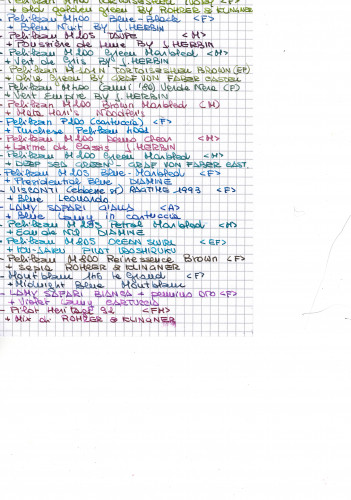 - Pelikan M400 TORTOISESHELL IVORY <F>
+ old golden green BY ROHRER & KLINGNER
- Pelikan M400 Blue-Black <F>
+ Bleu Nuit BY J. HERBIN
- Pelikan M205 TAUPE <M>
+ Poussière de Lune BY J. HERBIN
- Pelikan M200 Green Marbled <M>
+ Vert de Gris BY J. HERBIN
- Pelikan M101N TORTOISESHELL BROWN (EF)
+ Olive Green BY GRAF VON FABER CASTELL
- Pelikan M400 Verde Nera <F>
+ Vert Empire BY J. HERBIN
- Pelikan M200 Brown Marbled <M>
+ Mata Hari's Noodler's
- Pelikan P200 (cartuccia) <F>
+ Turchese Pelikan 4001
- Pelikan M200 Demo Clear <M>
+ Larme de Cassis J. HERBIN
- Pelikan M200 Green Marbled <M>
+ DEEP SEA GREEN - GRAF VON FABER CAST.
- Pelikan M205 Blue-Marbled <F>
+ Presidential Blue DIAMINE
- VISCONTI 1993 <F>
+ Blue Leonardo
- LAMY SAFARI <A>
+ Blue Lamy in cartuccia
- Pelikan M205 Petrol Marbled <M>
+ Eau de Nil DIAMINE
- Pelikan M805 OCEAN SWIRL <EF>
+ KU-JAKU PILOT IROSHIZUKU
- Pelikan M800 Renaissance Brown <F>
+ sepia ROHRER & KLINGNER
- Montblanc 146 Le Grand <F>
+ Midnight Blue Montblanc
- LAMY SAFARI BIANCA + pennino oro <F>
+ Violet Lamy CARTUCCIA
- Pilot Heritage 92 <FM>
+ Mix di ROHRER & KLINGNER